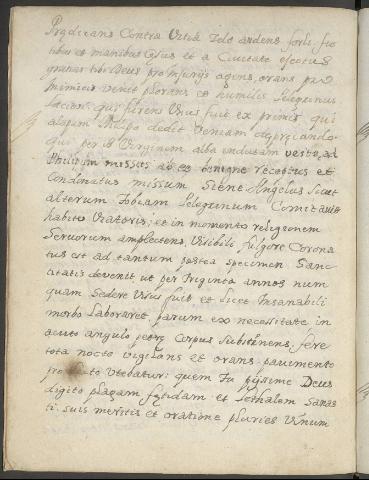 Prædicans Contra Vitia Zelo ardens
tibus et manibus Ejus et a Civitate ejectus
gratias tibi Deus pro injurijs agens, orans pro
inimicis venit plorans et humilis Peregrinus
qui furens Unus fuit ex primis qui
alapam dedit Veniam
qui per B Virginem alba indutam veste, ad
Philippum missus ab eo benigne receptus et
Condonatus missum Siene Angelus sicut
alterum Tobiam Peregrinum Comitavit
habito Viatoris; et in momento religionem
Servorum amplectens, Visibili fulgore Corona
tus est ad tantum postea specimen Sanc
titatis devenit, ut per triginta annos num
quam Sedere Visus fuit et licet Insanabili
morbo Laboraret, parum ex necessitate in
acuto angulo petre Corpus Substinens, fere
tota nocte vigilans et orans pavimento
pro Utebatur; quem Tu pijsime Deus
digito plagam fætidam et Lethalem Sanas
ti, suis meritis et oratione pluries Vinum